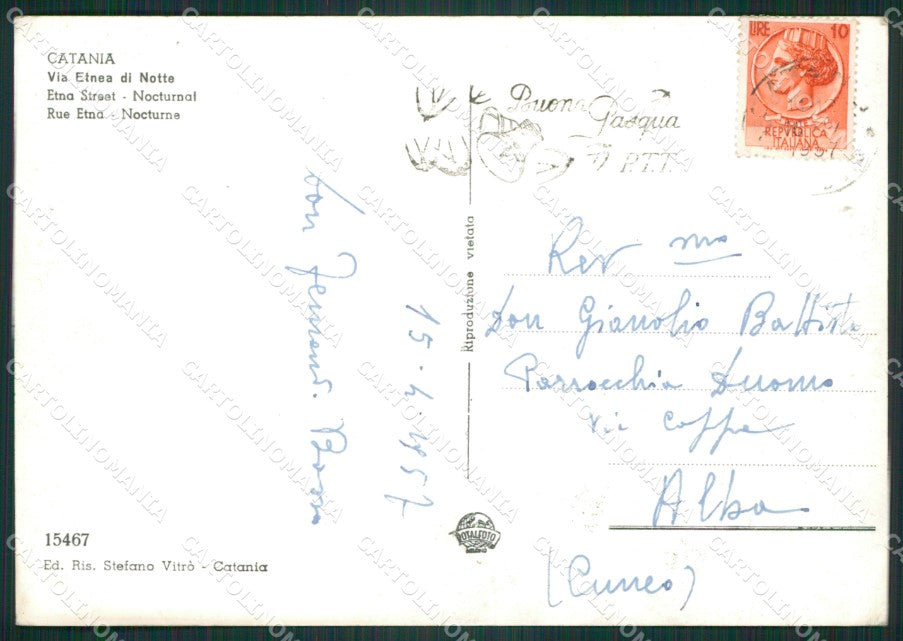 CATANIA
Via Etnea di Notte
Etna Street - Nocturnal
Rue Etna - Nocturne
Buona
Pasqua
P.T.T.
LIRE 10
REPVBBLICA
ITALIANA
1957
Riproduzione vietata
don
15-4-1957
Rev mo
Don Gianolio Battista
Parrocchia Duomo
Via Coppa
Alba
(Cuneo)
ROTALFOTO
15467
Ed. Ris. Stefano Vitrò - Catania
CARTOLINOMANIA